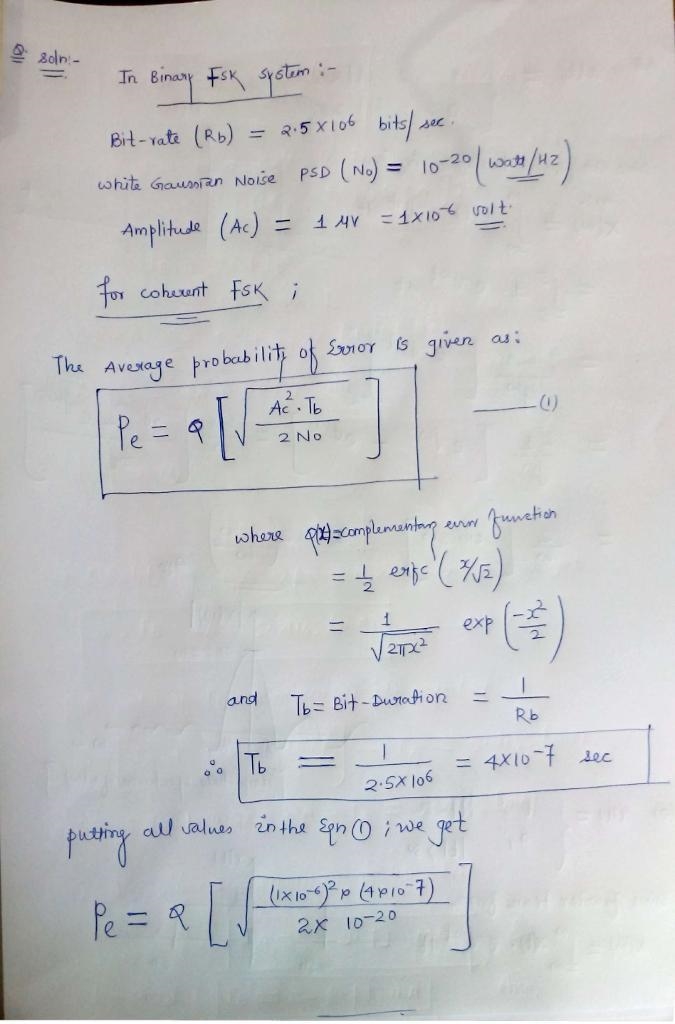 Q. Soln:-
In Binary FSK System :-
Bit-rate (Rb) = 2.5 X 10^6 bits/sec.
White Gaussian Noise PSD (No) = 10^-20 (watt/HZ)
Amplitude (Ac) = 1 μV = 1X10^-6 volt.
for coherent FSK ;
The Average probability of Error is given as:
Pe = Q [√(Ac^2 . Tb / 2 No)] —(1)
where Q(x)=complementary error function
= 1/2 erfc (x/√2)
= 1/√(2πx^2) exp (-x^2/2)
and Tb = Bit-Duration = 1/Rb
∴ Tb = 1/(2.5X10^6) = 4X10^-7 sec
putting all values in the Eqn (1) ; we get
Pe = Q [√((1X10^-6)^2 x (4x10^-7) / 2X 10^-20)]